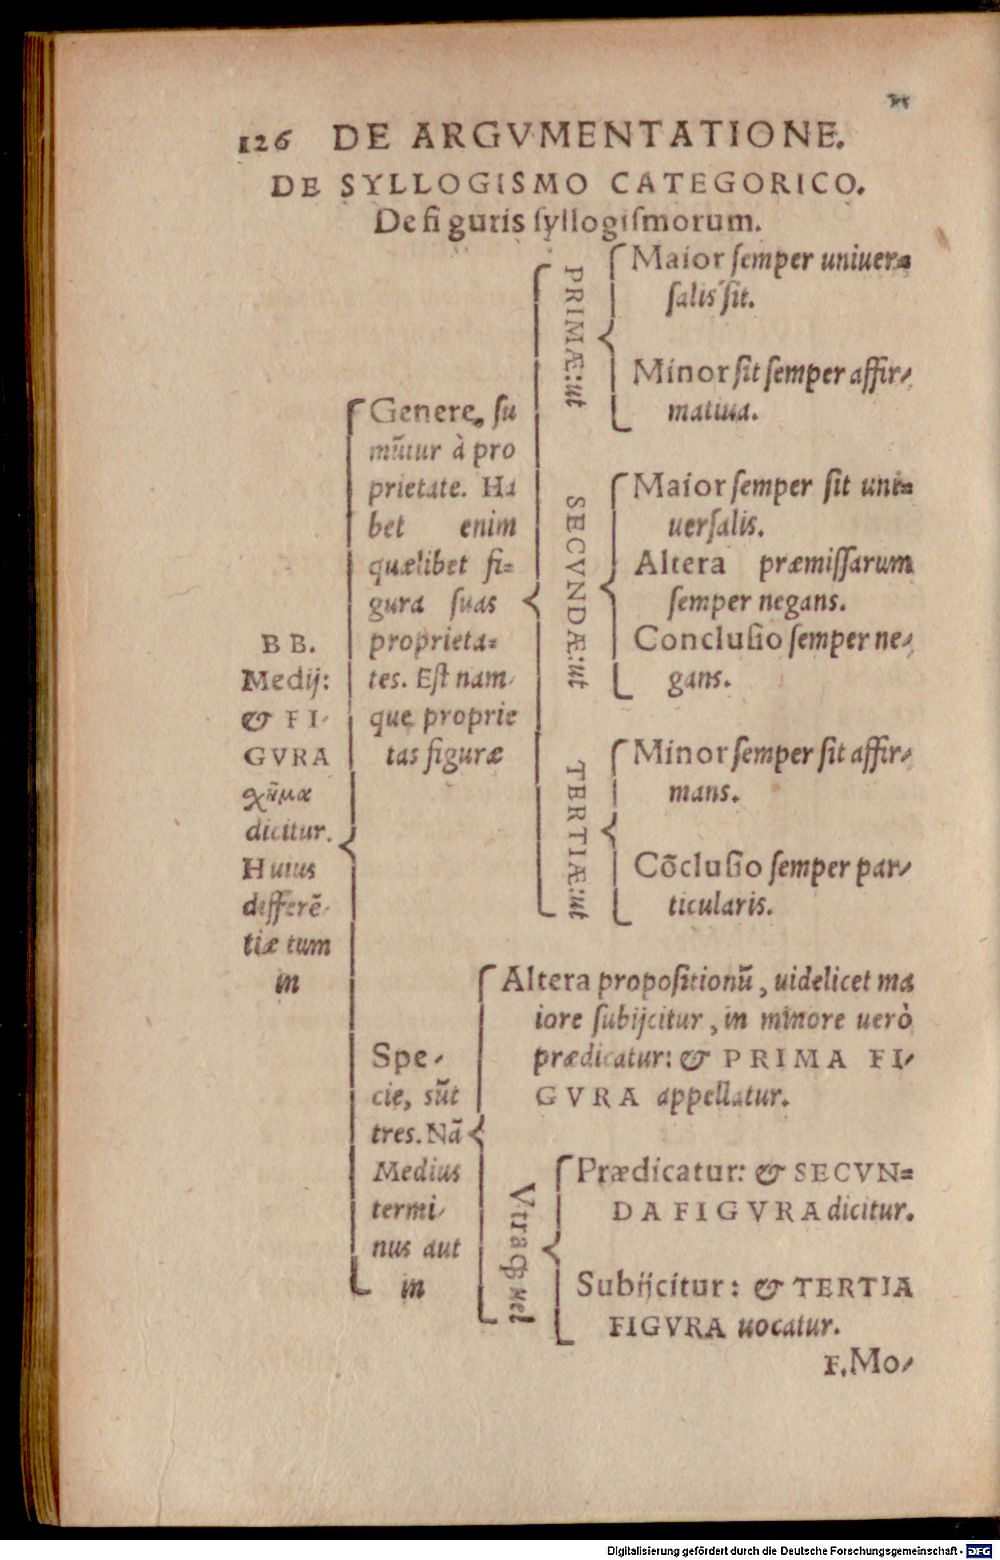 126 DE ARGVMENTATIONE.
DE SYLLOGISMO CATEGORICO.
De figuris syllogismorum.
BB.
Medij:
& FI-
GVRA
χῆμα
dicitur.
Huius
differẽ-
tiæ tum
in
Genere, su
mũtur à pro
prietate. Ha
bet enim
quælibet fi=
gura suas
proprieta=
tes. Est nam-
que proprie
tas figuræ
PRIMÆ: ut
Maior semper uniuer=
salis sit.
Minor sit semper affir-
matiua.
SECVNDÆ: ut
Maior semper sit uni=
uersalis.
Altera præmissarum
semper negans.
Conclusio semper ne-
gans.
TERTIÆ: ut
Minor semper sit affir-
mans.
Cõclusio semper par-
ticularis.
Spe-
cie, sũt
tres. Nã
Medius
termi-
nus aut
in
Altera propositionũ, uidelicet ma
iore subijcitur, in minore uerò
prædicatur: & PRIMA FI-
GVRA appellatur.
Vtraqꝫ uel
Prædicatur: & SECVN=
DA FIGVRA dicitur.
Subijcitur: & TERTIA
FIGVRA uocatur.
F. Mo-
Digitalisierung gefördert durch die Deutsche Forschungsgemeinschaft - DFG